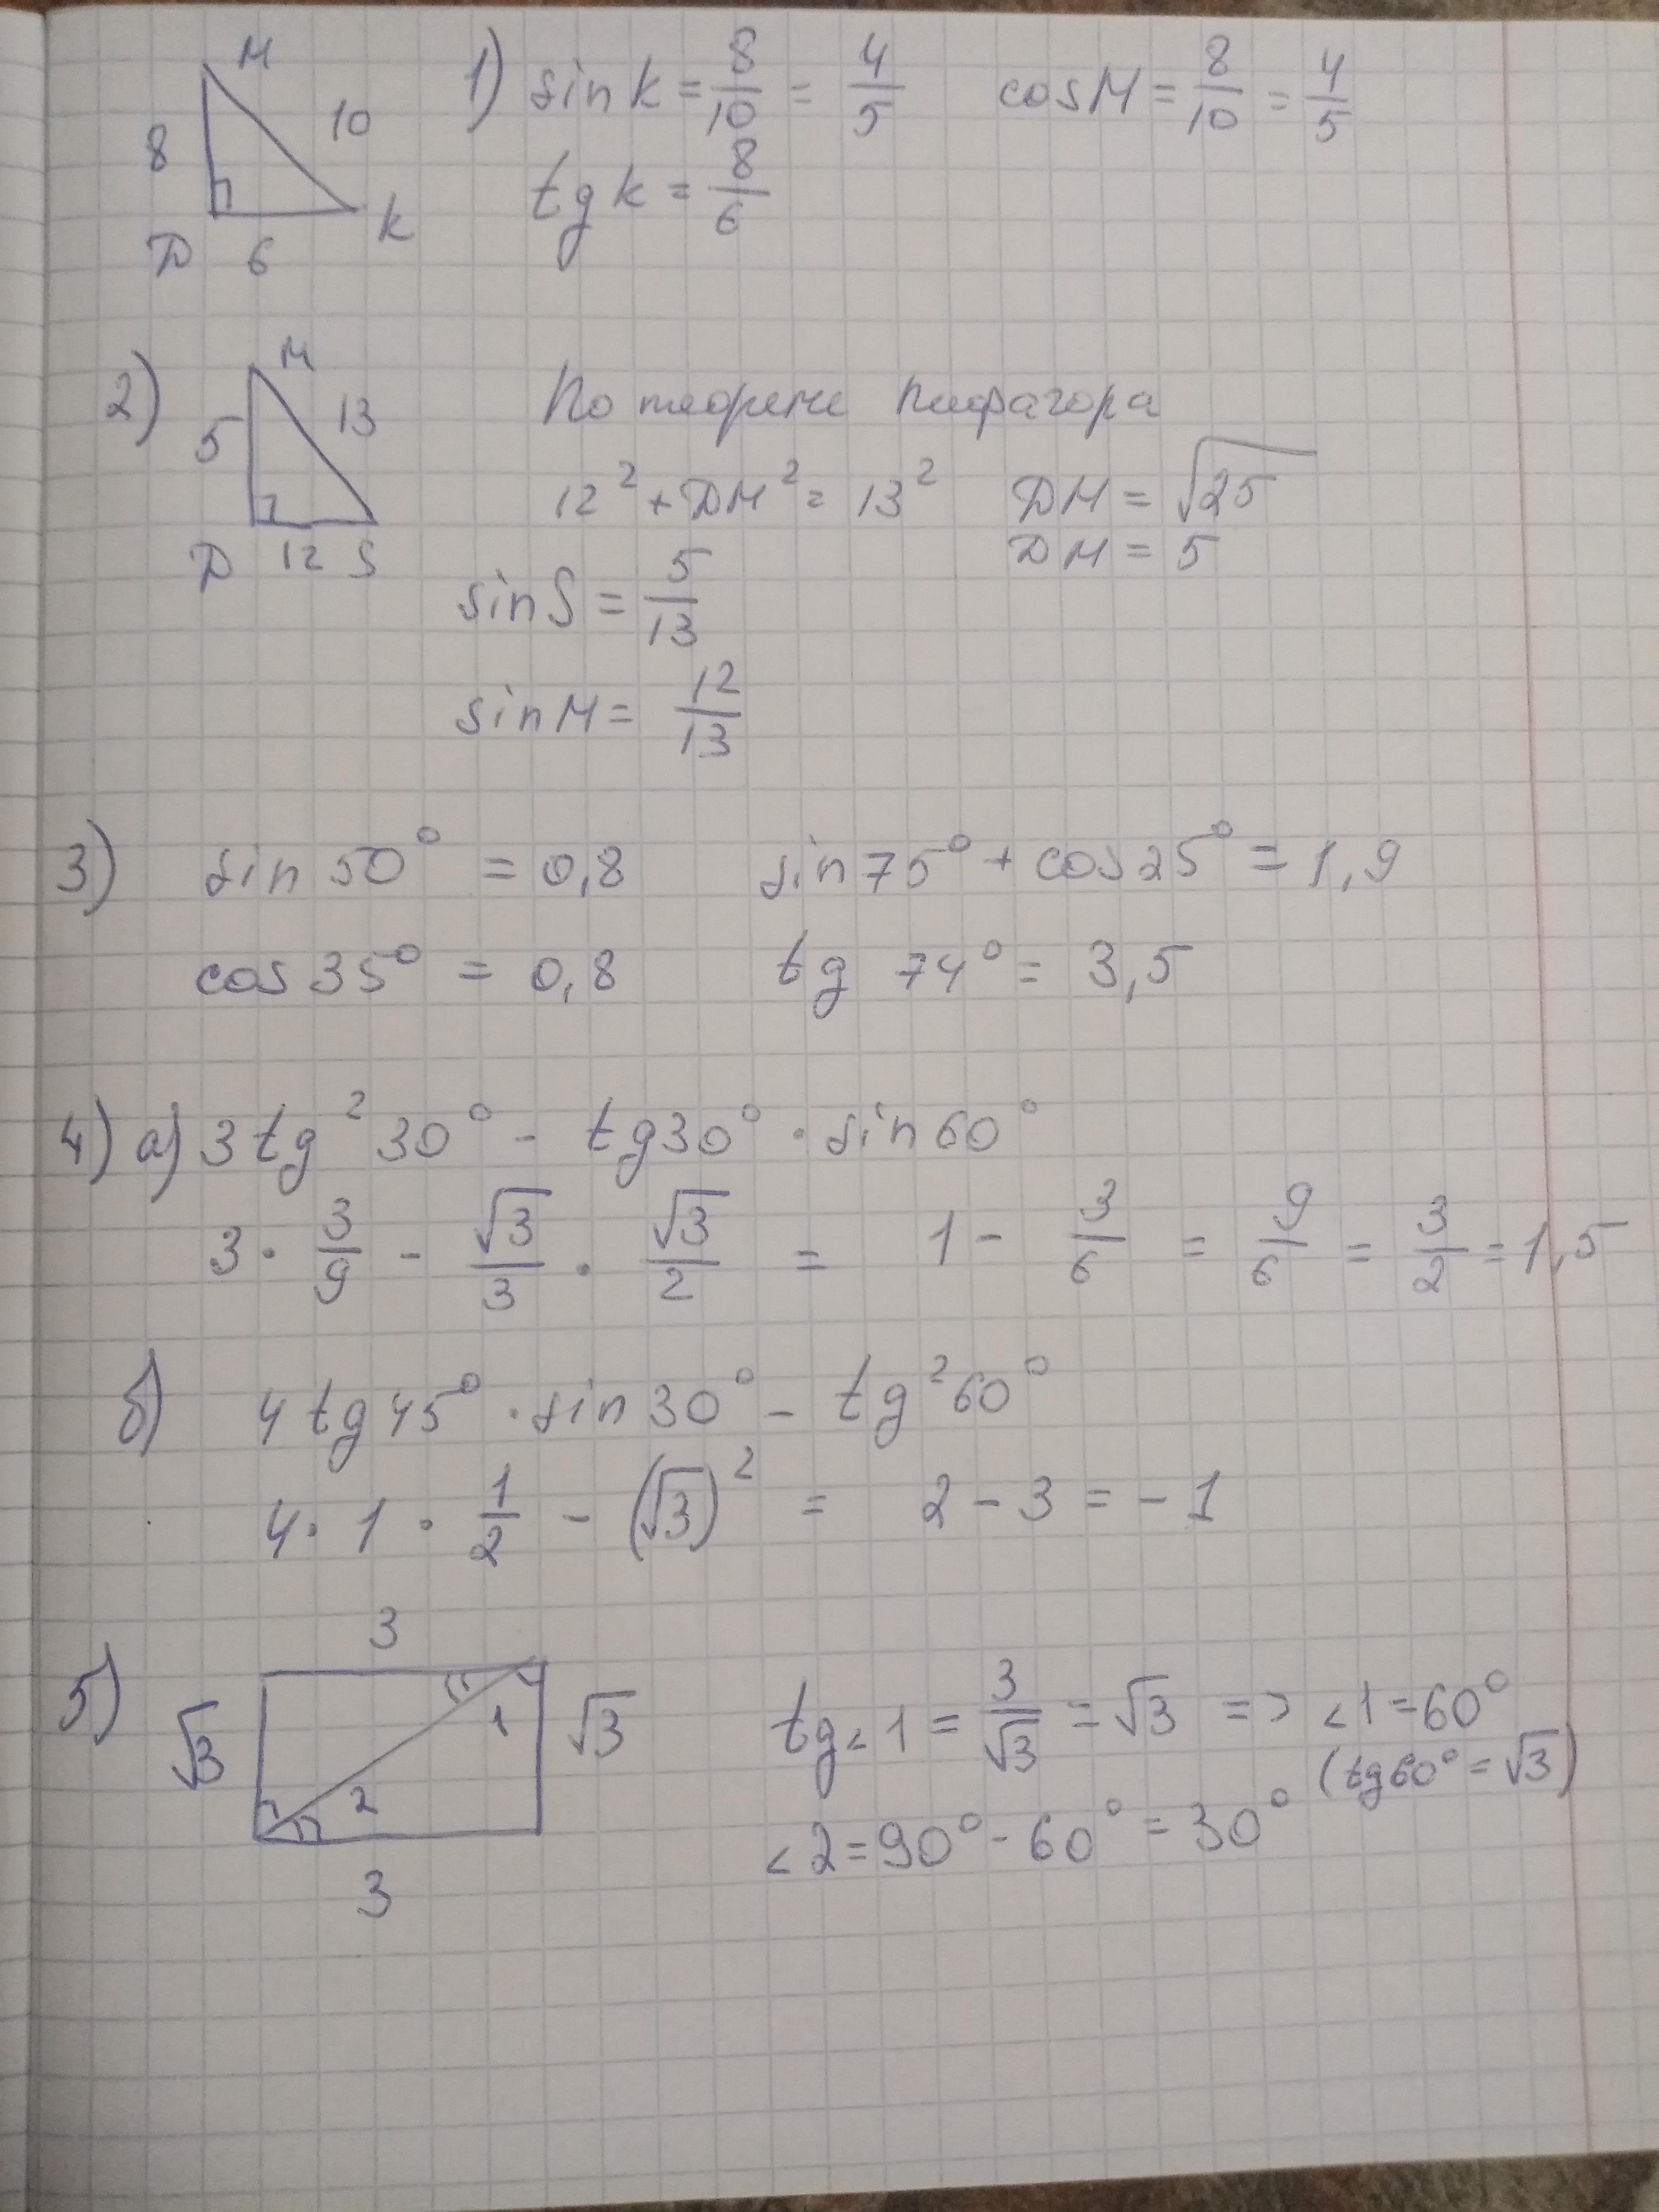 M
8 10
Д 6 K
1) sin k = 8/10 = 4/5 cos M = 8/10 = 4/5
tg k = 8/6
2) M
5 13
Д 12 S
По теореме Пифагора
12² + ДМ² = 13² ДМ = √25
ДМ = 5
sin S = 5/13
sin M = 12/13
3) sin 50° = 0,8 sin 75° + cos 25° = 1,9
cos 35° = 0,8 tg 74° = 3,5
4) а) 3 tg² 30° - tg 30° · sin 60°
3 · 3/9 - √3/3 · √3/2 = 1 - 3/6 = 9/6 = 3/2 = 1,5
б) 4 tg 45° · sin 30° - tg² 60°
4 · 1 · 1/2 - (√3)² = 2 - 3 = -1
5) 3
√3 1 √3
2
3
tg < 1 = 3/√3 = √3 => < 1 = 60°
(tg 60° = √3)
< 2 = 90° - 60° = 30°